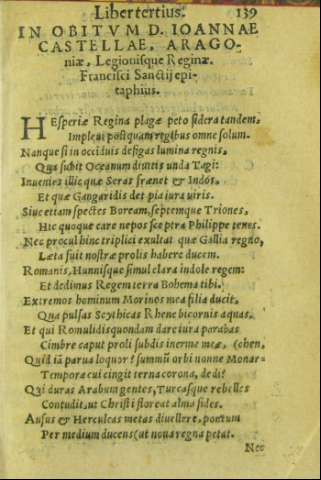 Liber tertius. 139
IN OBITVM D. IOANNAE
CASTELLAE, ARAGO-
niæ, Legionisque Reginæ.
Francisci Sanctij epi-
taphius.
HEsperiæ Regina plagæ peto sidera tandem,
Impleui postquam regibus omne solum.
Nanque si in occiduis defigas lumina regnis,
Qua subit Oceanum ditis unda Tagi:
Inuenies illic quæ Seras frænet & Indos,
Et quæ Gangaridis det pia iura viris.
Siue etiam spectes Boream, septemque Triones,
Hic quoque care nepos sceptra Philippe tenes.
Nec procul hinc triplici exultat quæ Gallia regno,
Læta fuit nostræ prolis habere ducem.
Romanis, Hunnisque simul clara indole regem:
Et dedimus Regem terra Bohema tibi.
Extremos hominum Morinos mea filia ducit,
Qua pulsas Scythicas Rhene bicornis aquas.
Et qui Romulidis quondam dare iura parabas
Cimbre caput proli subdis inerme meæ, (chen,
Quid tũ parua loquor? summũ orbi nonne Monar-
Tempora cui cingit terna corona, dedi?
Qui duras Arabum gentes, Turcasque rebelles
Contudit, ut Christi floreat alma fides.
Ausus & Herculeas metas diuellere, pontum
Per medium ducens (ut noua regna petat.
Nec